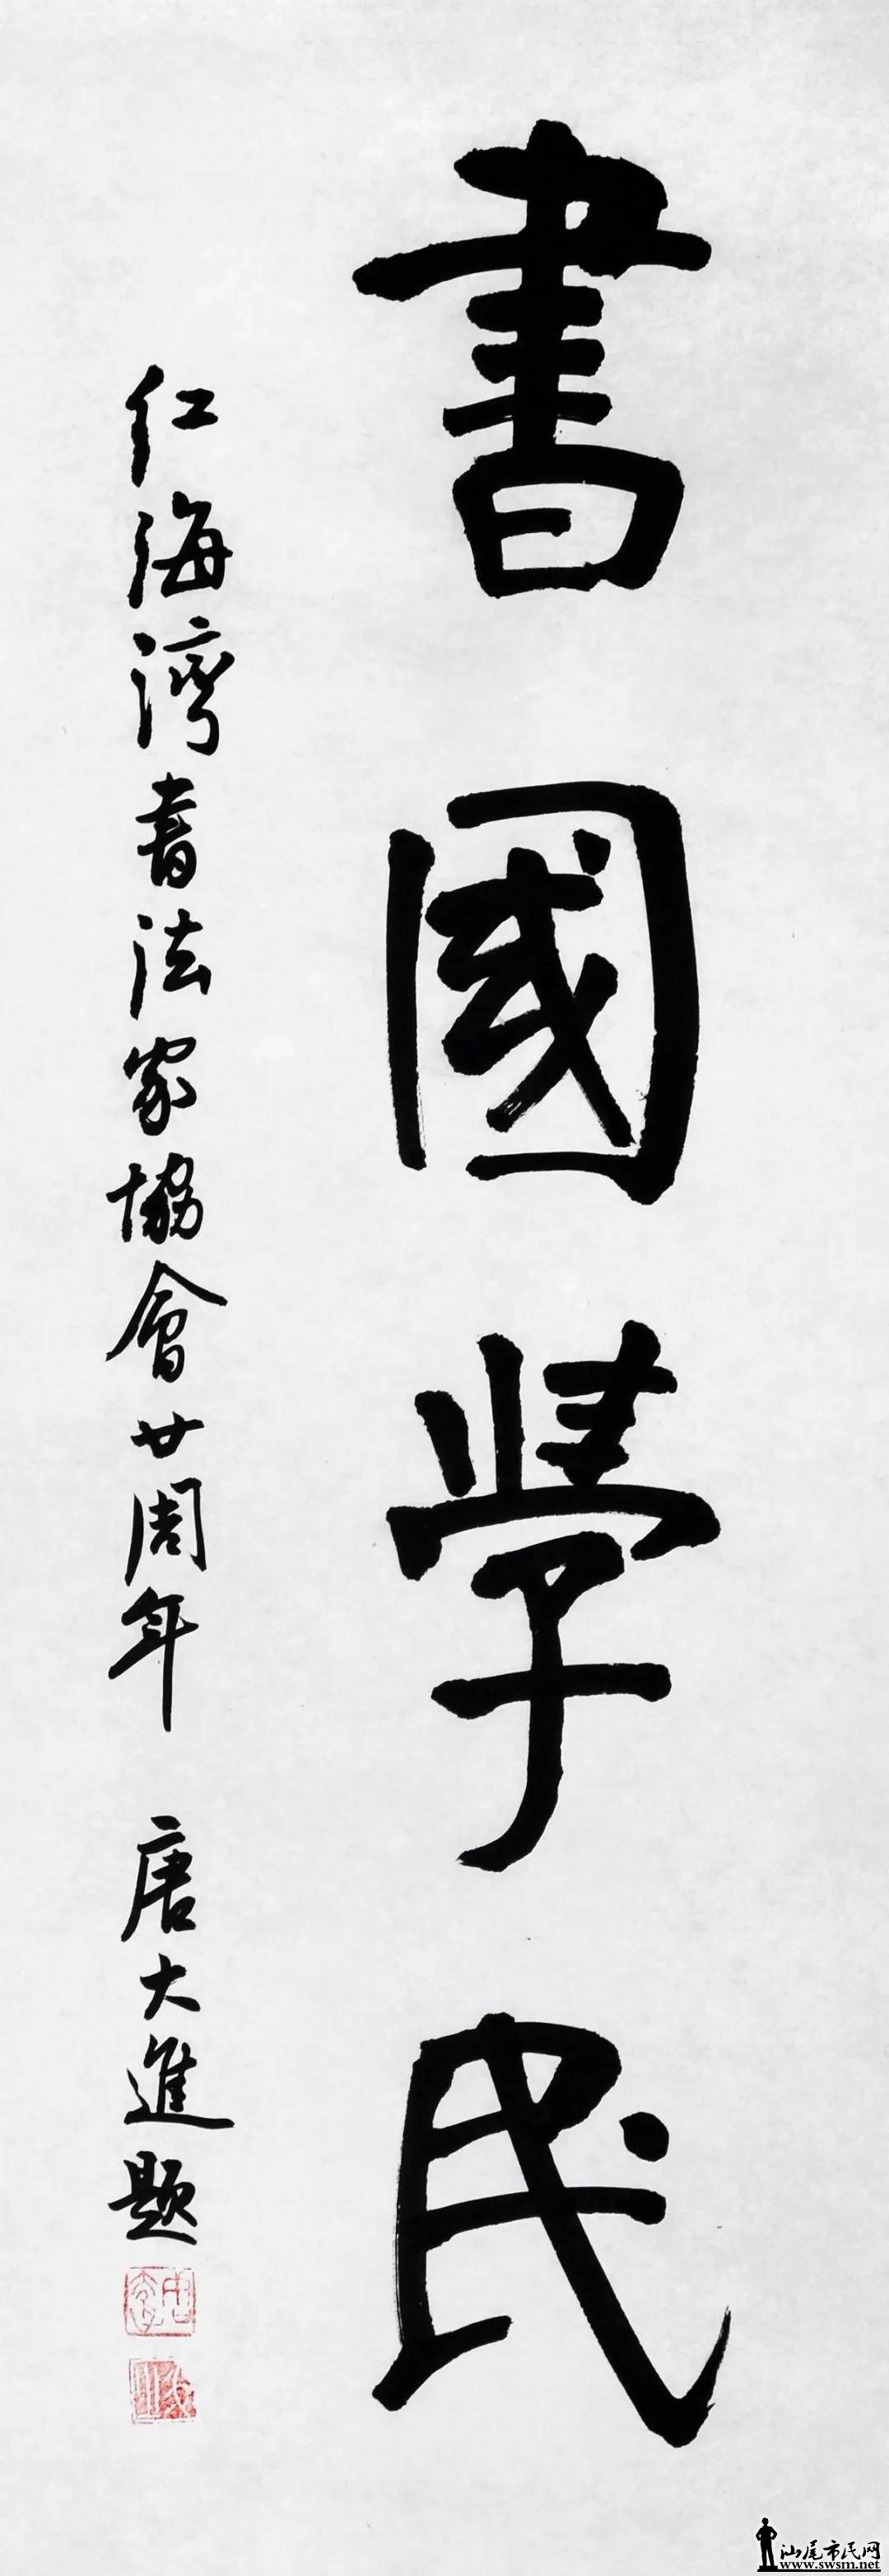 書國學民
红海灣書法家協會廿周年 唐大進題
汕尾市民网
www.swsm.net